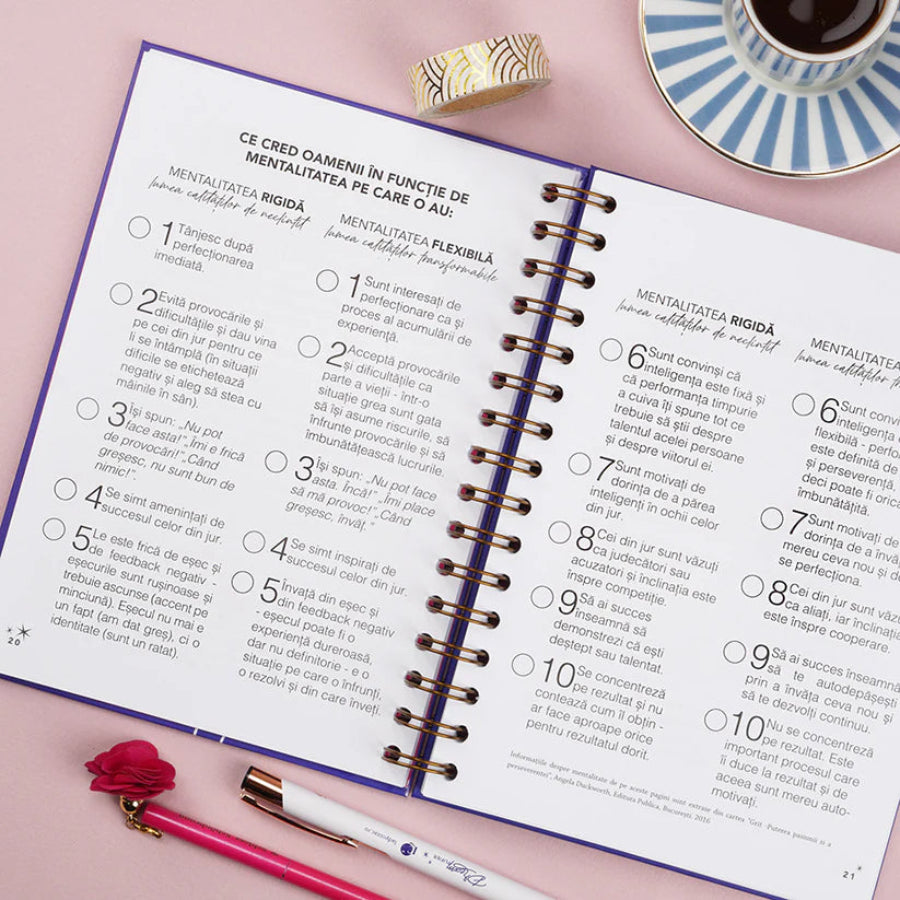 CE CRED OAMENII ÎN FUNCȚIE DE
MENTALITATEA PE CARE O AU:
MENTALITATEA RIGIDĂ
lumea calităților de neclintit
1 Tânjesc după
perfecționarea
imediată.
2 Evită provocările și
dificultățile și dau vina
pe cei din jur pentru ce
li se întâmplă (în situații
dificile se etichetează
negativ și aleg să stea cu
mâinile în sân).
3 Își spun: „Nu pot
face asta!" „Îmi e frică
de provocări!" „Când
greșesc, nu sunt bun de
nimic!"
4 Se simt amenințați de
succesul celor din jur.
5 Le este frică de eșec și
de feedback negativ -
eșecurile sunt rușinoase și
trebuie ascunse (accent pe
minciună). Eșecul nu mai e
un fapt (am dat greș), ci o
identitate (sunt un ratat).
20
MENTALITATEA FLEXIBILĂ
lumea calităților transformabile
1 Sunt interesați de
perfecționare ca și
proces al acumulării de
experiență.
2 Acceptă provocările
și dificultățile ca
parte a vieții - într-o
situație grea sunt gata
să își asume riscurile, să
înfrunte provocările și să
îmbunătățească lucrurile.
3 Își spun: „Nu pot face
asta. Încă!" „Îmi place
să mă provoc!" „Când
greșesc, învăț."
4 Se simt inspirați de
succesul celor din jur.
5 Învață din eșec și
din feedback negativ
- eșecul poate fi o
experiență dureroasă,
dar nu definitorie - e o
situație pe care o înfrunți,
o rezolvi și din care înveți.
MENTALITATEA RIGIDĂ
lumea calităților de neclintit
6 Sunt convinși că
inteligența este fixă și
că performanța timpurie
a cuiva îți spune tot ce
trebuie să știi despre
talentul acelei persoane
și despre viitorul ei.
7 Sunt motivați de
dorința de a părea
inteligenți în ochii celor
din jur.
8 Cei din jur sunt văzuți
ca judecători sau
acuzatori și înclinația este
înspre competiție.
9 Să ai succes
înseamnă să
demonstrezi că ești
deștept sau talentat.
10 Se concentrează
pe rezultat și nu
contează cum îl obțin -
ar face aproape orice
pentru rezultatul dorit.
MENTALITATEA
lumea calităților
6 Sunt convinși
inteligența e
flexibilă - perfor
este definită de
și perseverență,
deci poate fi oric
îmbunătățită.
7 Sunt motivați de
dorința de a învă
mereu ceva nou și d
se perfecționa.
8 Cei din jur sunt văzu
ca aliați, iar înclinația
este înspre cooperare.
9 Să ai succes înseamnă
să te autodepășești
prin a învăța ceva nou și
să te dezvolți continuu.
10 Nu se concentrează
pe rezultat. Este
important procesul care
îi duce la rezultat și de
aceea sunt mereu auto-
motivați.
Informațiile despre mentalitate de pe aceste pagini sunt extrase din cartea "Grit -Puterea pasiunii și a
perseverenței", Angela Duckworth, Editura Publica, București, 2016
21